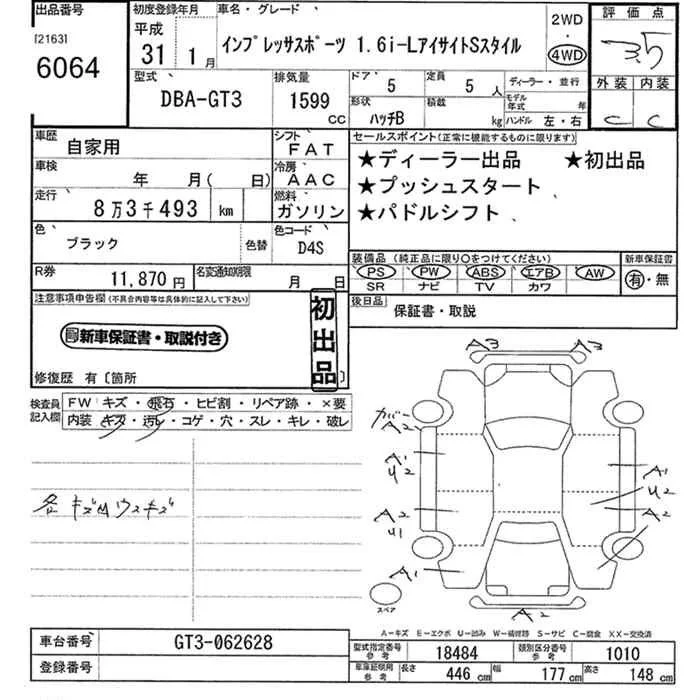 出品番号 初度登録年月 車名・グレード 2WD 評価点
[2163] 平成 インプレッサスポーツ 1.6i-LアイサイトSスタイル 4WD 3.5
6064 31年 1月
型式 排気量 ドア 定員 ディーラー・並行 外装 内装
DBA-GT3 1599 CC 5 5人 モデル年式 年 C C
形状 ハッチB 積載 kg ハンドル 左・右
車歴 自家用 シフト FAT セールスポイント(正常に機能するものに限ります)
車検 年 月( 日) 冷房 AAC ★ディーラー出品 ★初出品
走行 8万3千493 km 燃料 ガソリン ★プッシュスタート
★パドルシフト
色 ブラック 色替 色コード D4S
装備品(純正品に限り○をつけてください) 新車保証書
R券 11,870円 名変通知期限 月 日 PS PW ABS エアB AW 有・無
SR ナビ TV カワ
注意事項申告欄(不具合内容等は具体的に記入して下さい) 初出品 後日品 保証書・取説
新車保証書・取説付き
修復歴 有〔箇所 〕
検査員記入欄 FW キズ・飛石・ヒビ割・リペア跡・×要
内装 キズ・汚レ・コゲ・穴・スレ・キレ・破レ
各キズ凹ウスキズ
A3 A3
カバー A2
A1 U2 A1 U2
A2 U1 A2
A1 A2
スペア
A−キズ E−エクボ U−凹み W−補修跡 S−サビ C−腐食 XX−交換済
車台番号 GT3-062628 型式指定番号 参考 18484 類別区分番号 参考 1010
登録番号 車庫証明用 参考 長さ 446 cm 幅 177 cm 高さ 148 cm